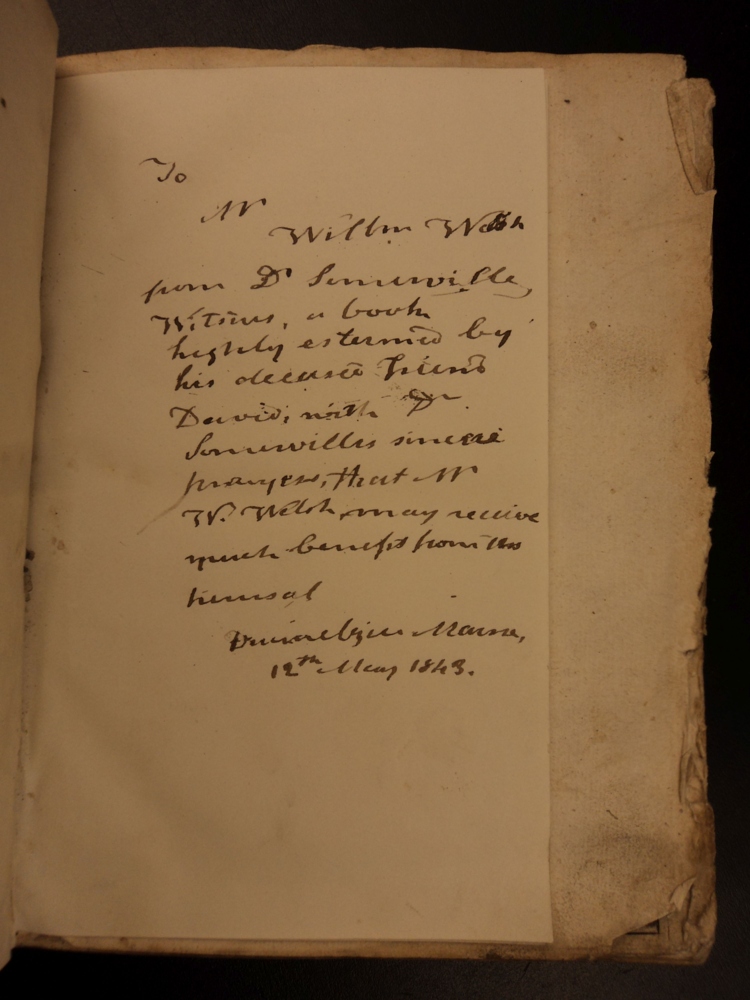 To
Mr
Willm Welsh
from Dr Somerville,
Witsius, a book
highly esteemed by
his deceased friend
David, with Dr
Somervilles sincere
prayers, that Mr
W. Welsh, may receive
much benefit from its
perusal
Drumelzier Manse,
12th May 1843.